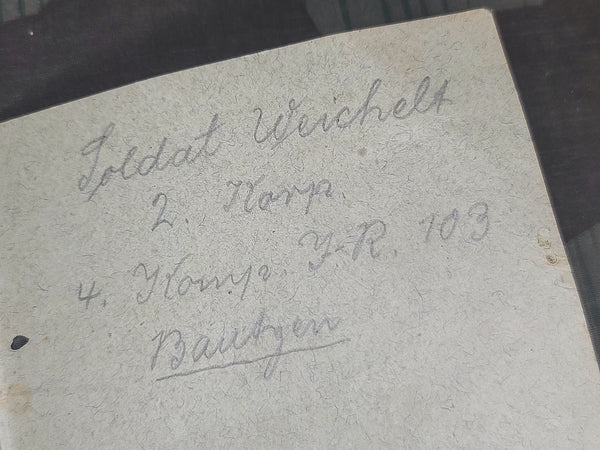 Soldat Weichelt
2. Korp.
4. Komp. J-R. 103
Bautzen